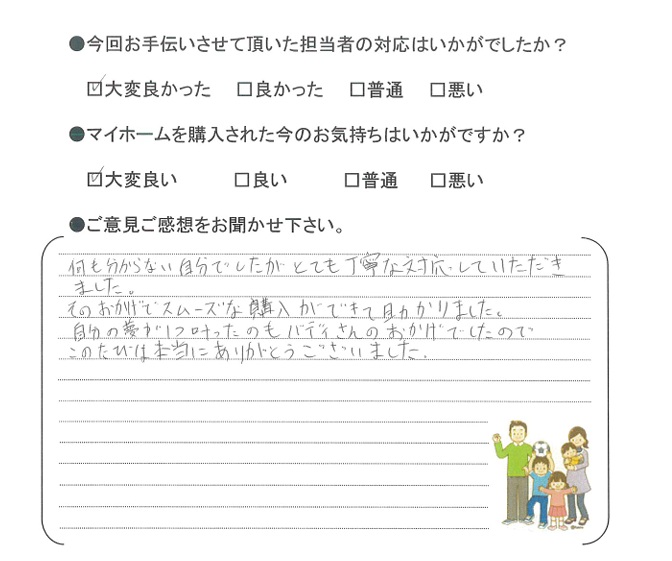 ●今回お手伝いさせて頂いた担当者の対応はいかがでしたか？
☑大変良かった □良かった □普通 □悪い
●マイホームを購入された今のお気持ちはいかがですか？
☑大変良い □良い □普通 □悪い
●ご意見ご感想をお聞かせ下さい。
何も分からない自分でしたがとても丁寧な対応していただき
ました。
そのおかげでスムーズな購入ができて助かりました。
自分の夢が1つ叶ったのもバディさんのおかげでしたので
このたびは本当にありがとうございました.